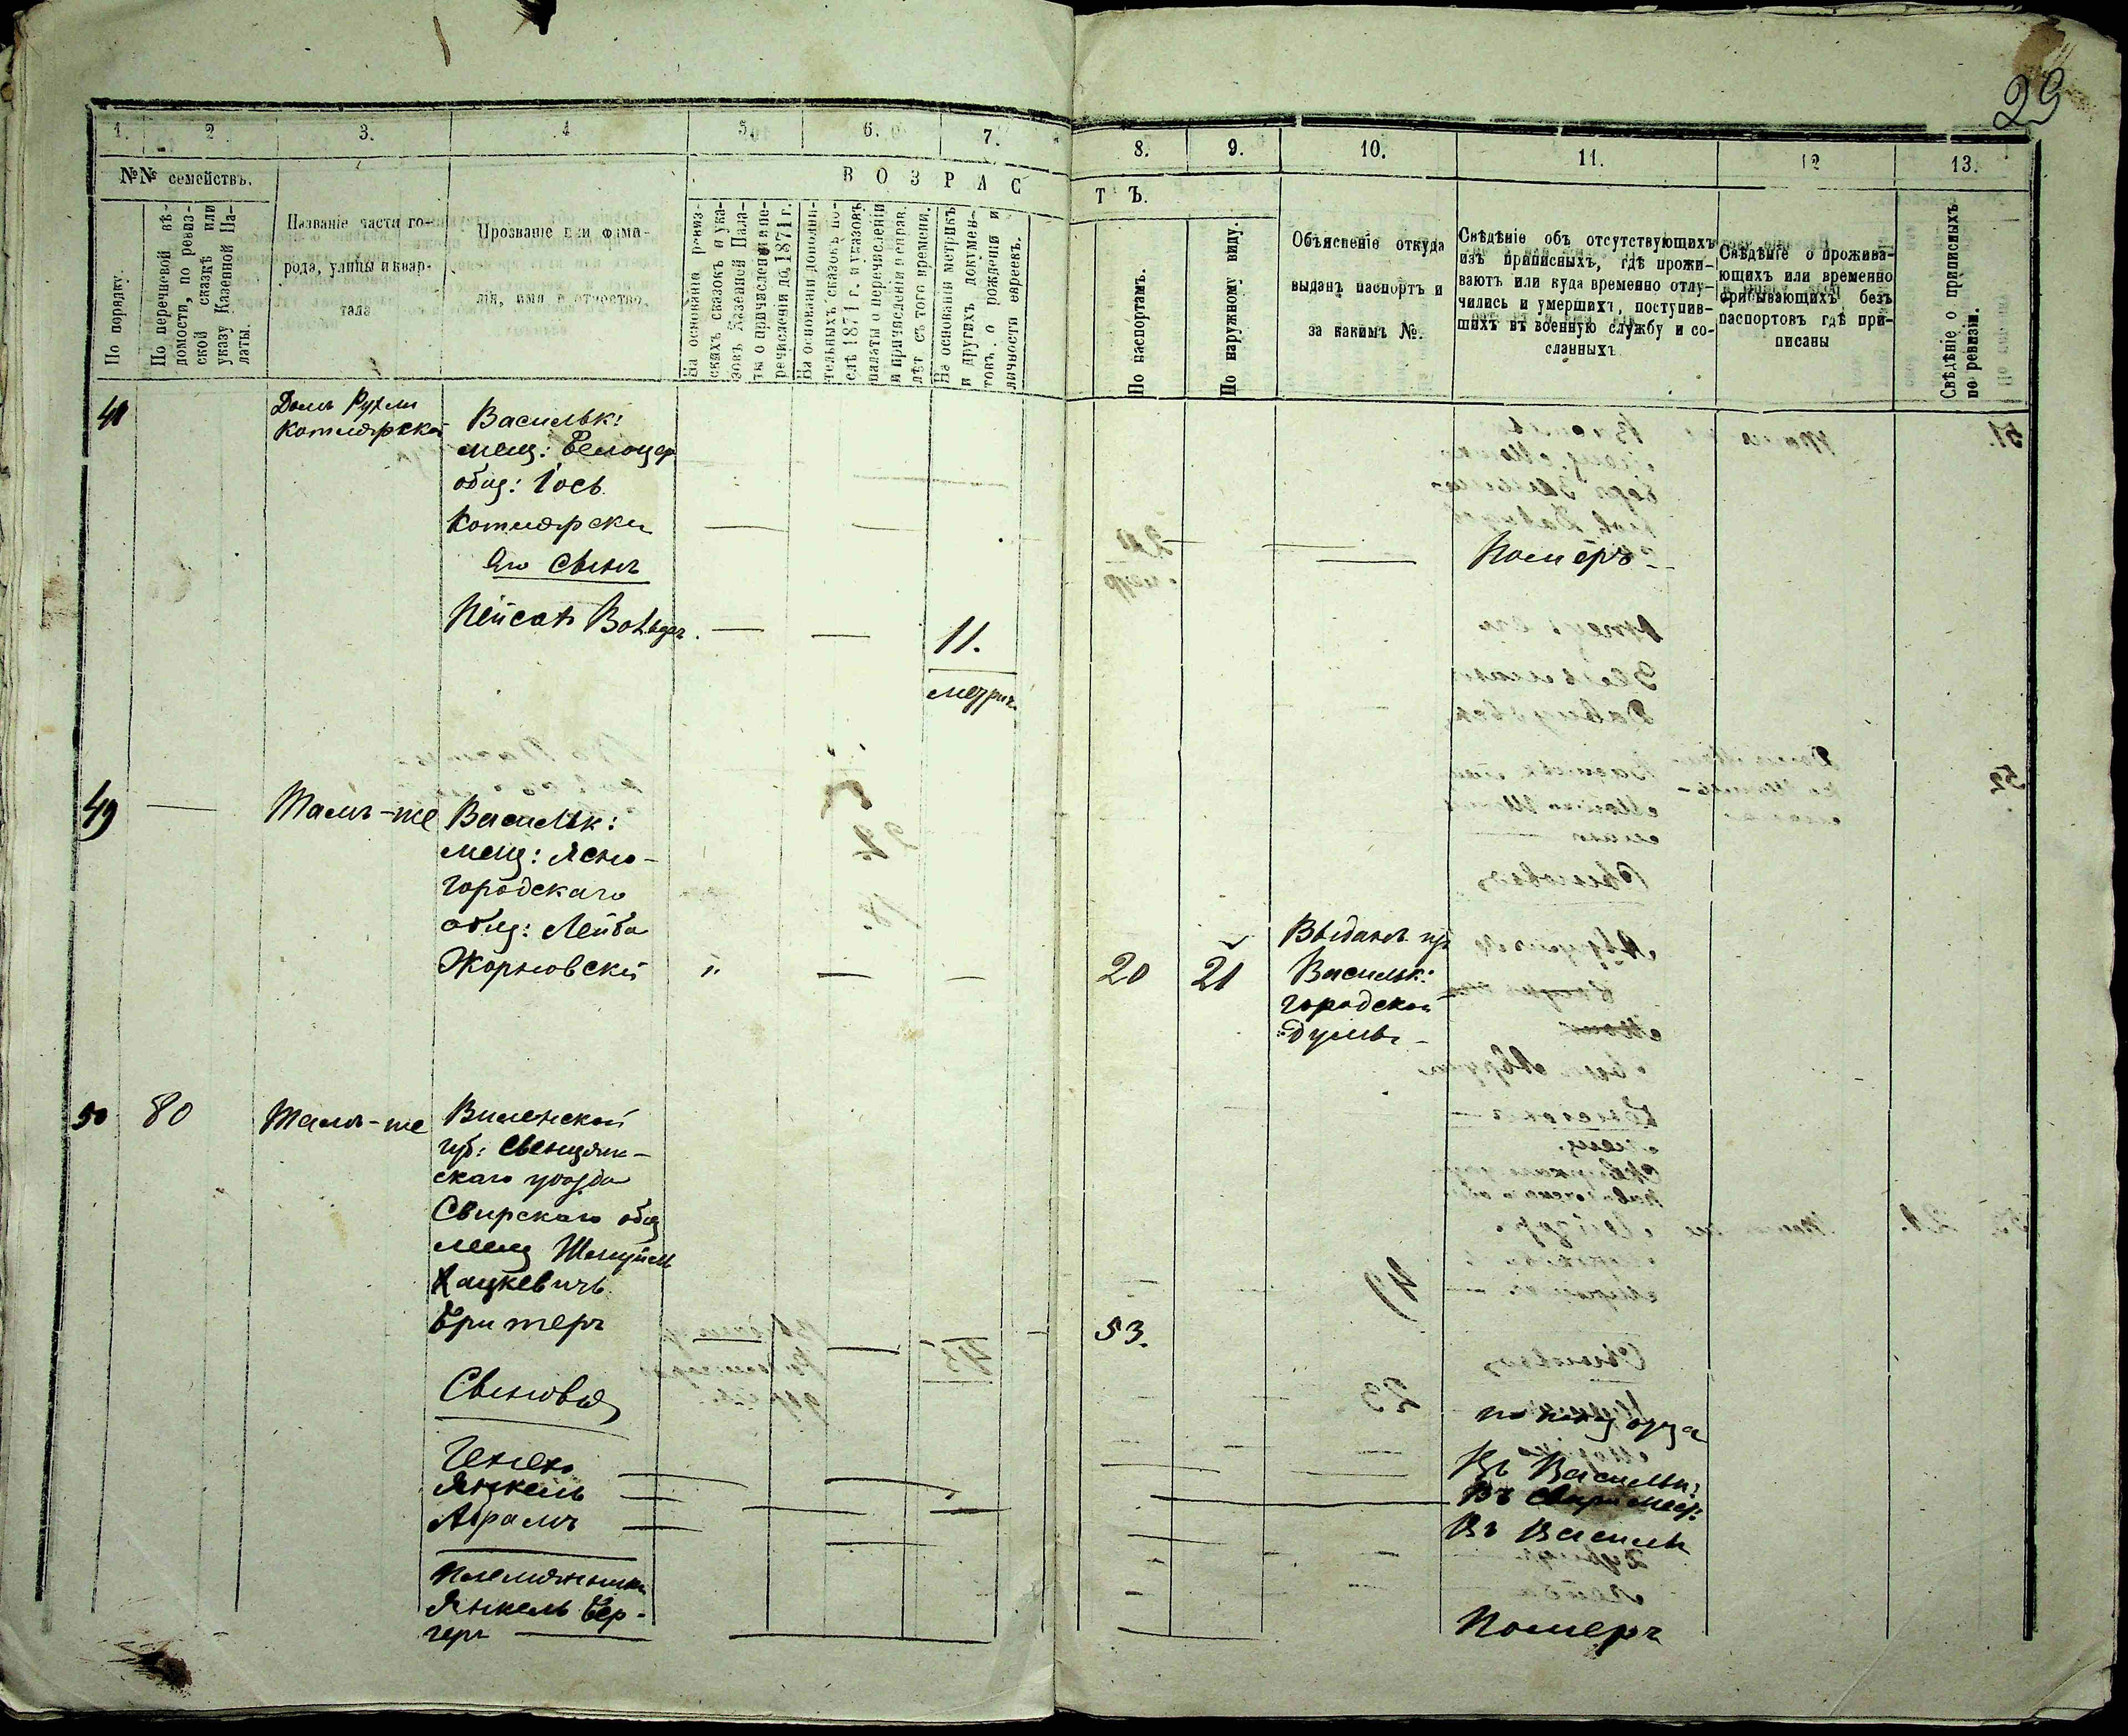 29
1.
2
3.
4
5.
6.
7.
8.
9.
10.
11.
12
13.
№№ семействъ.
ВОЗРАС
ТЪ.
По порядку.
По перечневой вѣ-
домости, по ревиз-
ской сказкѣ или
указу Казенной Па-
латы.
Названіе части го-
рода, улицы и квар-
тала
Прозваніе или фами-
лія, имя и отчество.
На основаніи ревиз-
скихъ сказокъ и ука-
зовъ Казенной Пала-
ты о причисленіи и пе-
речисленіи до 1871 г.
На основаніи дополни-
тельныхъ сказокъ по-
слѣ 1871 г. и указовъ
палаты о перечисленіи
и причисленіи и справ.
лѣт съ того времени.
На основаніи метрикъ
и другихъ докумен-
товъ о рожденіи и
личности евреевъ.
По паспортамъ.
По наружному виду.
Объясненіе откуда
выданъ паспортъ и
за какимъ №.
Свѣдѣніе объ отсутствующихъ
изъ приписныхъ, гдѣ прожи-
ваютъ или куда временно отлу-
чились и умершихъ, поступив-
шихъ въ военную службу и со-
сланныхъ
Свѣдѣніе о прожива-
ющихъ или временно
прибывающихъ безъ
паспортовъ гдѣ при-
писаны
Свѣдѣніе о приписныхъ
по ревизіи.
Домъ Рухли
Котлярской
Васильк:
мещ: Белоцер
общ: Іосъ
Котлярски
Померъ
Его Сынъ
Пейсахъ Вольдъ
11.
метрич.
49
Тамъ-же
Васильк:
мещ: Ясно-
городскаго
общ: Лейба
Жорновскій
20
21
Выданъ из
Васильк:
городской
думы
50
80
Тамъ-же
Виленской
губ: Свенцян-
скаго уѣзда
Свирскаго общ
мещ Шмуйль
Хацкевичъ
Бритеръ
53.
Сыновья
Генехъ
Въ Васильк:
Янкель
Въ Свирѣ мест:
Абрамъ
Въ Василь
Племянники
Янкель Бер-
геръ
Померъ